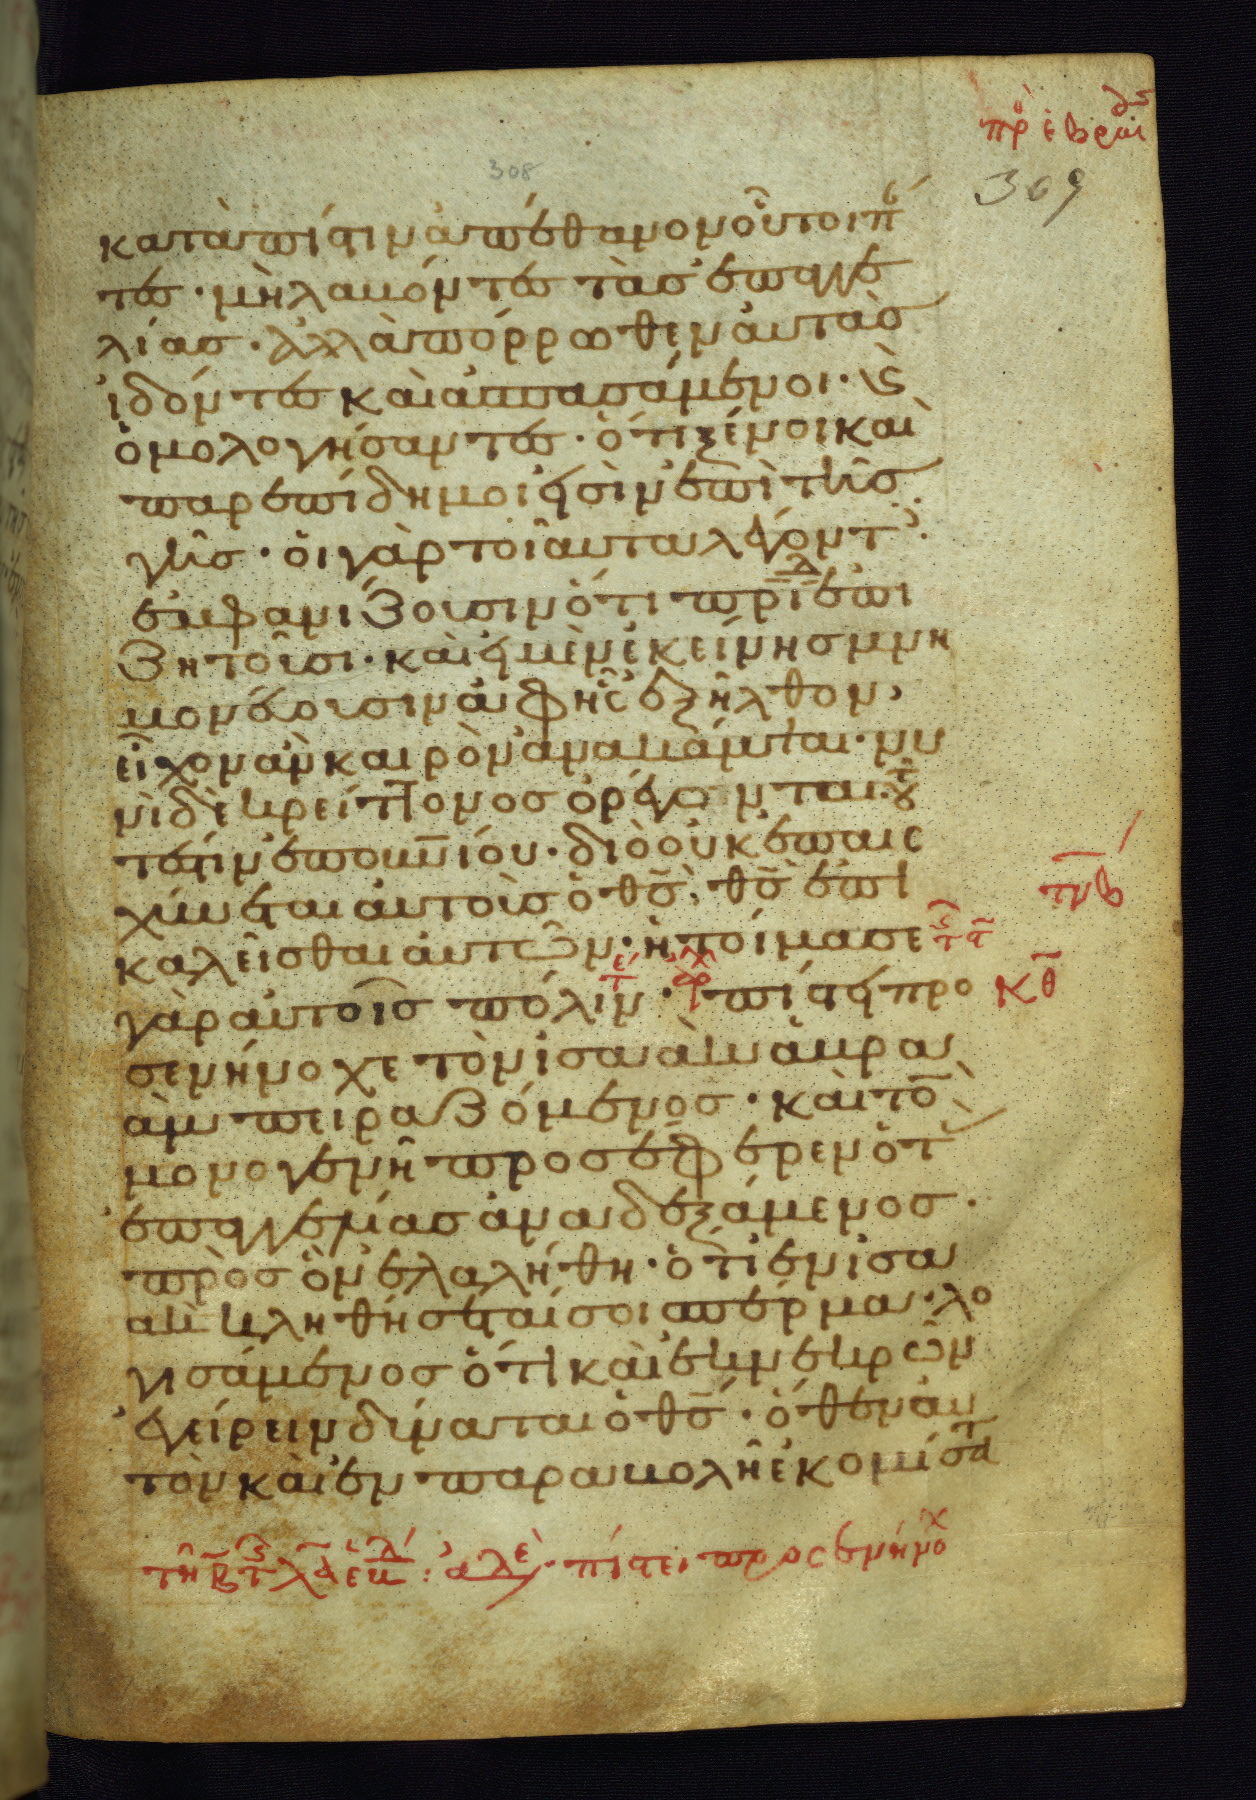 πρ ἑβραί
308
309
κατὰ πίστιν ἀπέθανον οὗτοι πάν
τες · μὴ λαβόντες τὰς ἐπαγγε
λίας · ἀλλὰ πόρρωθεν αὐτὰς
ἰδόντες καὶ ἀσπασάμενοι · καὶ
ὁμολογήσαντες · ὅτι ξένοι καὶ
παρεπίδημοί εἰσιν ἐπὶ τῆς
γῆς · οἱ γὰρ τοιαῦτα λέγοντες
ἐμφανίζουσιν ὅτι πρίδα ἐπι
ζητοῦσι · καὶ εἰ μὲν ἐκείνης μνη
μονεύουσιν ἀφ ἧς ἐξῆλθον,
εἶχον ἂν καιρὸν ἀνακάμψαι · νυ
νὶ δὲ κρείττονος ὀρέγονται · τουτ
τέστιν ἐπουνίου · διὸ οὐκ ἐπαισ
χύνεται αὐτοὺς ὁ θς, θς ἐπι
τνβ
καλεῖσθαι αὐτῶν · ἡτοίμασε
γὰρ αὐτοῖς πόλιν · πίστει προ
κθ
σενήνοχε τὸν ἰσαὰκ ἁβρα
ὰμ πειραζόμενος · καὶ τὸν
μονογενῆ προσέφερεν ὁ τὰς
ἐπαγγελίας ἀναδεξάμενος ·
πρὸς ὃν ἐλαλήθη · ὅτι ἐν ἰσα
ὰκ κληθήσεταί σοι σπέρμα · λο
γισάμενος ὅτι καὶ ἐκ νεκρῶν
ἐγείρειν δύναται ὁ θς · ὅθεν αὐ
τὸν καὶ ἐν παραβολῆ ἐκομίσατο
πίστει προσενήνοχ